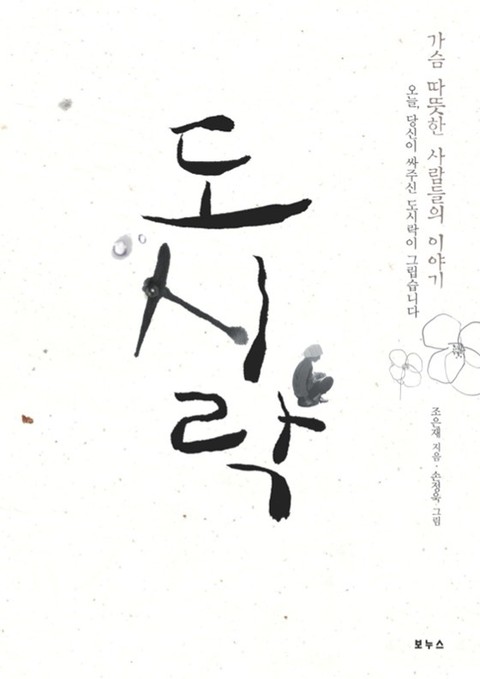 가슴 따뜻한 사람들의 이야기
오늘, 당신이 싸주신 도시락이 그립습니다
도시락
조은재 지음 · 손정욱 그림
보누스